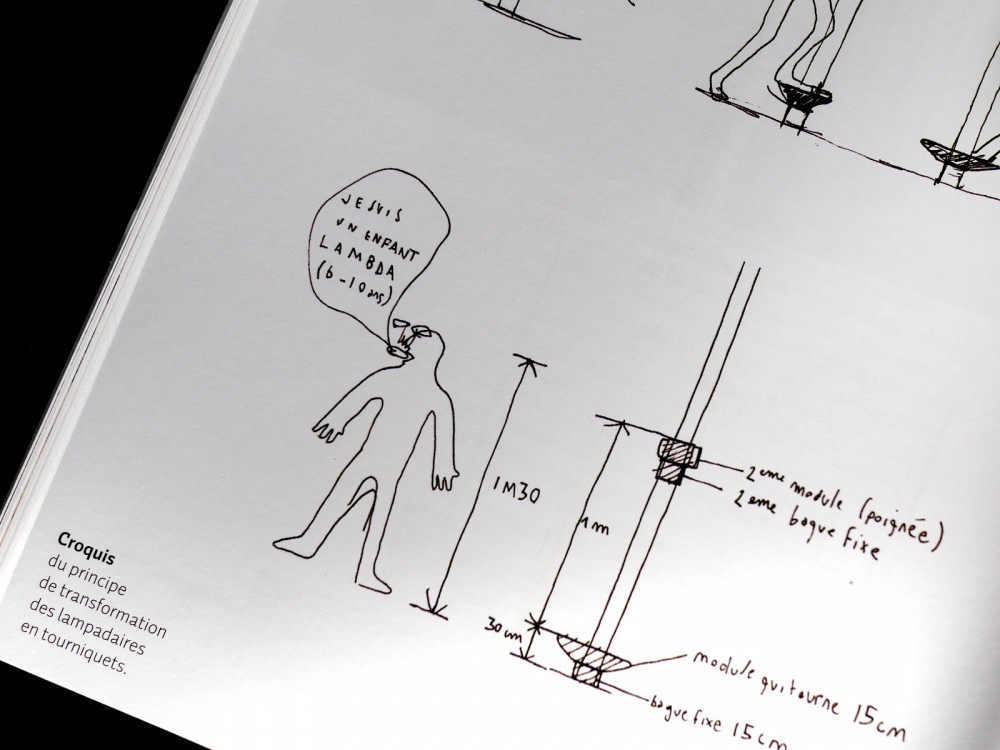 JE SUIS
UN ENFANT
LAMBDA
(6-10 ans)
1M30
1m
30cm
2eme module (poignée)
2eme bague fixe
module qui tourne 15cm
bague fixe 15cm
Croquis
du principe
de transformation
des lampadaires
en tourniquets.